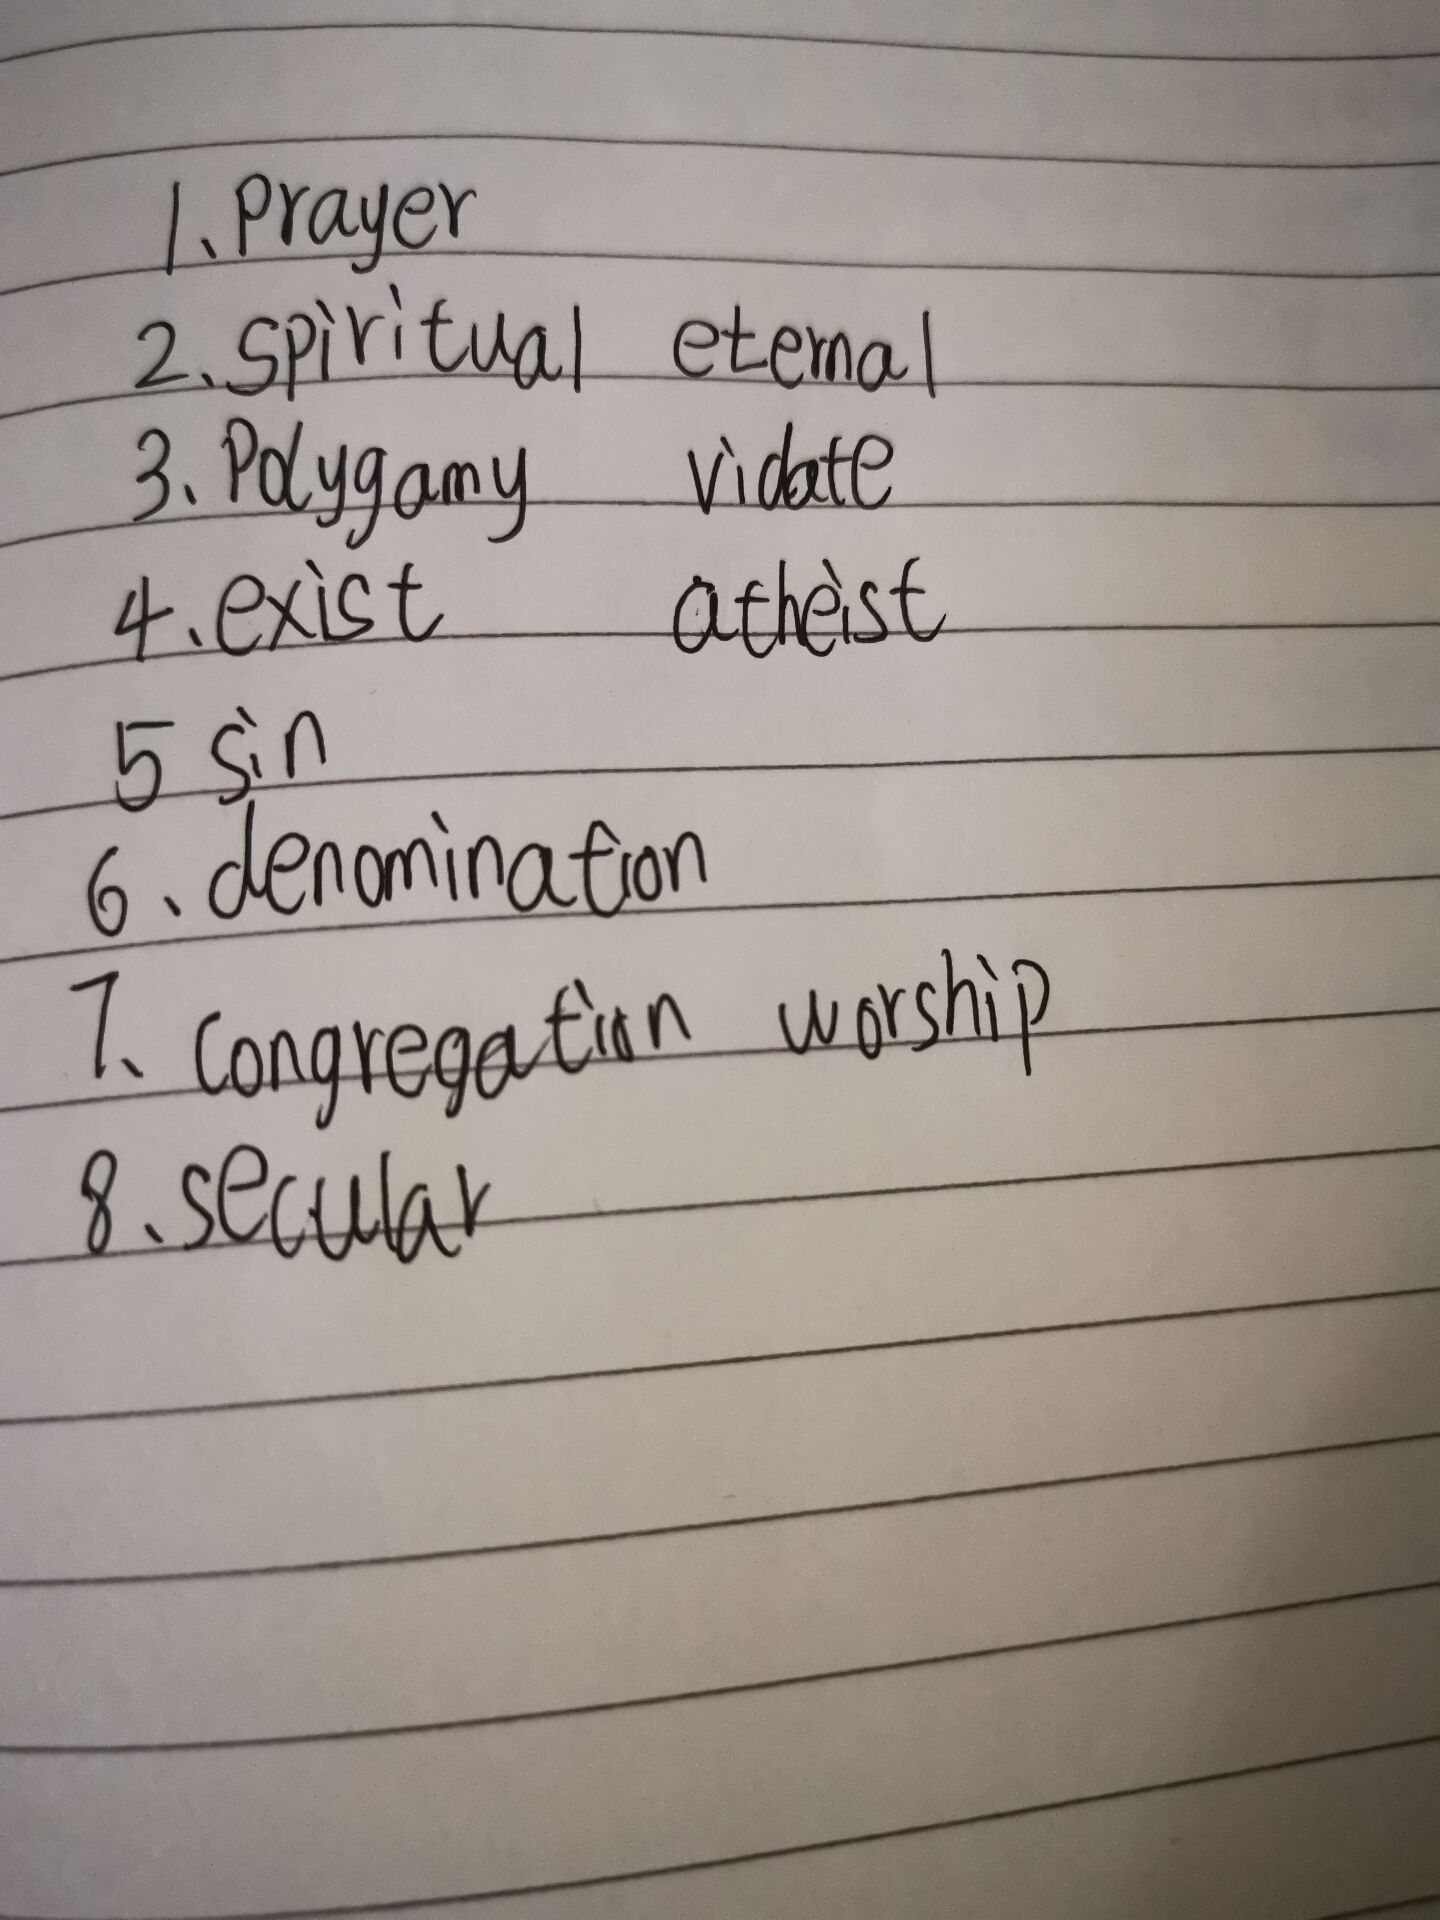 1. Prayer
2. spiritual eternal
3. Polygamy violate
4. exist atheist
5 sin
6. denomination
7. congregation worship
8. secular